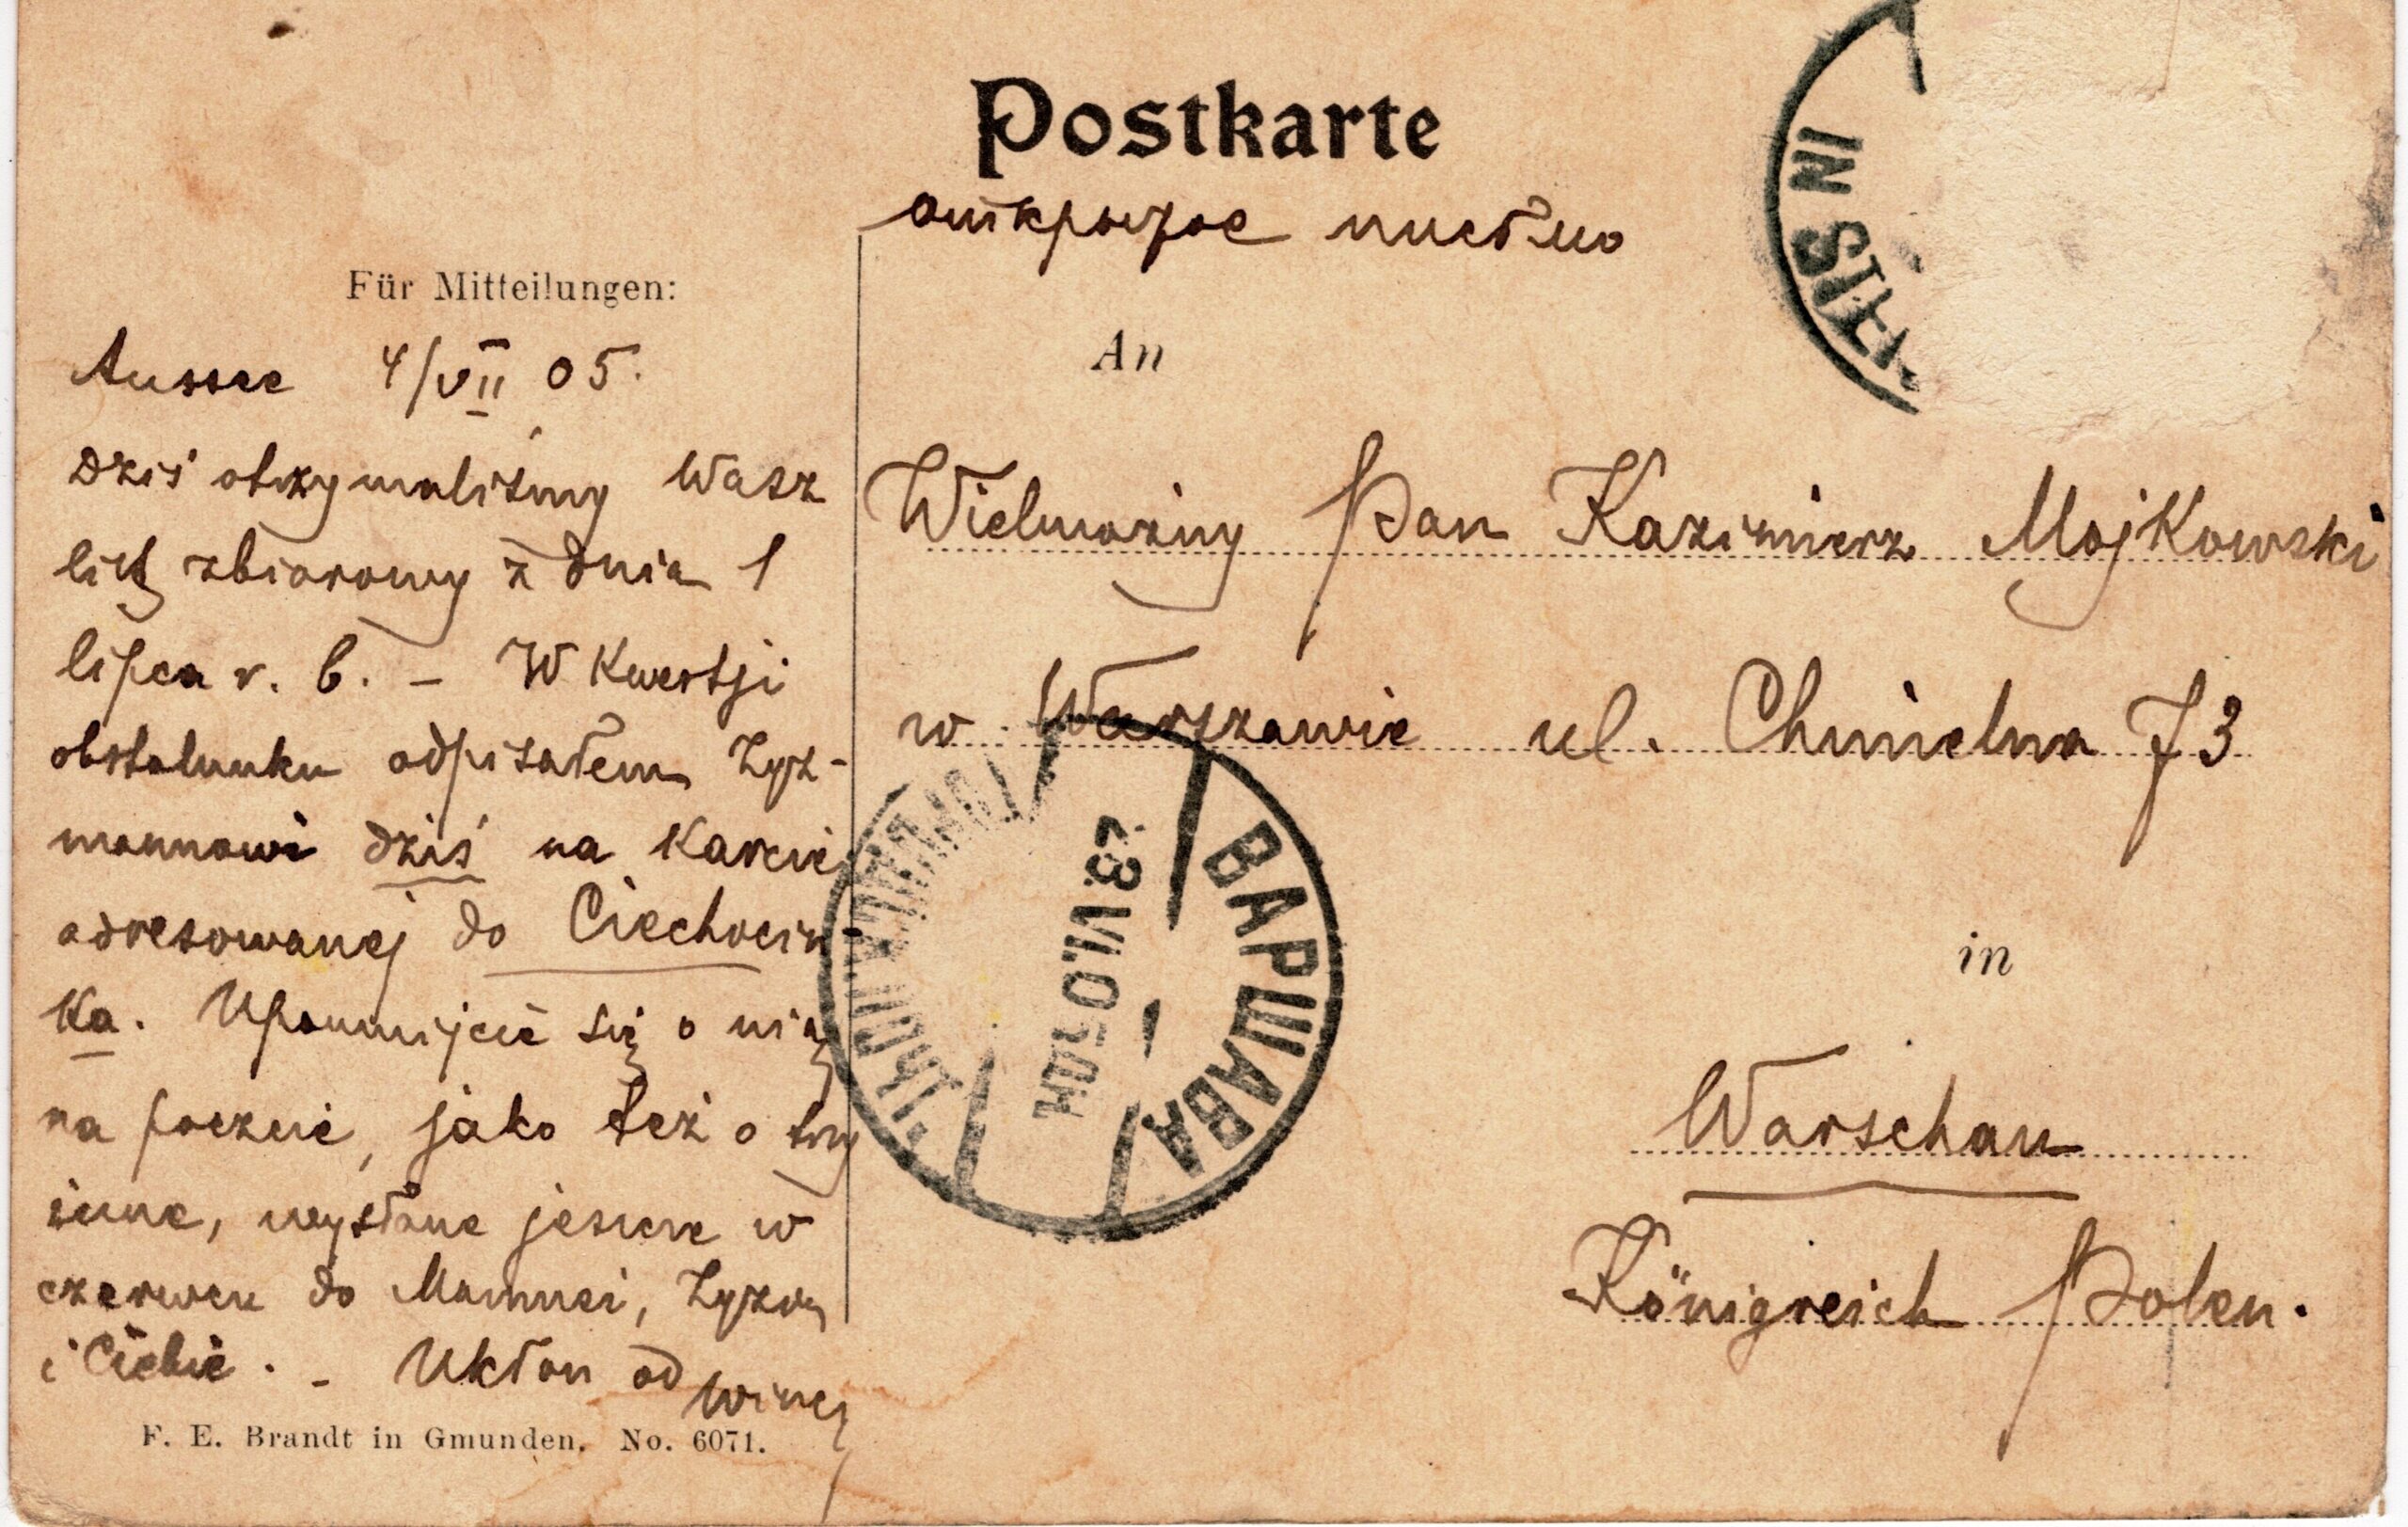 Postkarte
открытое письмо
IN STEI
Für Mitteilungen:
An
Aussee 4/VII 05.
Dziś otrzymaliśmy Wasz
list zbiorowy z dnia 1
lipca r. b. – W kwestji
obstalunku odpisałem Zyz-
mannowi dziś na karcie
adresowanej do Ciechocin-
ka. Upomnijcie się o nią
na poczcie, jako też o trzy
inne, wysłane jeszcze w
czerwcu do Mamusi,
i Ciebie. – Ukłon od
F. E. Brandt in Gmunden. No. 6071.
Wielmożny Pan Kazimierz Mojkowski
w Warszawie ul. Chmielna 73
ВАРШАВА
23.VI.05
in
Warschau
Königreich Polen.